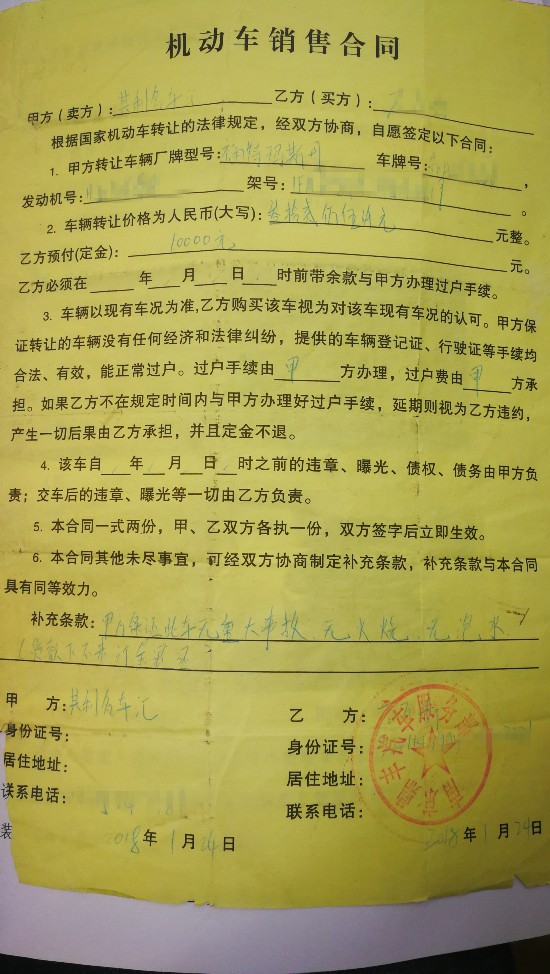 机动车销售合同
甲方（卖方）：其利名车汇 乙方（买方）：
根据国家机动车转让的法律规定，经双方协商，自愿签定以下合同：
1. 甲方转让车辆厂牌型号： 车牌号： ，
发动机号： 架号： 。
2. 车辆转让价格为人民币(大写)：叁拾贰万伍仟元 元整。
乙方预付(定金)：10000元 元。
乙方必须在 年 月 日 时前带余款与甲方办理过户手续。
3. 车辆以现有车况为准,乙方购买该车视为对该车现有车况的认可。甲方保
证转让的车辆没有任何经济和法律纠纷，提供的车辆登记证、行驶证等手续均
合法、有效，能正常过户。过户手续由 甲 方办理，过户费由 甲 方承
担。如果乙方不在规定时间内与甲方办理好过户手续，延期则视为乙方违约，
产生一切后果由乙方承担，并且定金不退。
4. 该车自 年 月 日 时之前的违章、曝光、债权、债务由甲方负
责；交车后的违章、曝光等一切由乙方负责。
5. 本合同一式两份，甲、乙双方各执一份，双方签字后立即生效。
6. 本合同其他未尽事宜，可经双方协商制定补充条款，补充条款与本合同
具有同等效力。
补充条款：甲方保证此车无重大事故、无火烧、无泡水
(贷款下不来订金退还
甲 方：其利名车汇 乙 方：
身份证号： 身份证号：
居住地址： 居住地址：
联系电话： 联系电话：
装 2018年1月24日 2018年1月24日